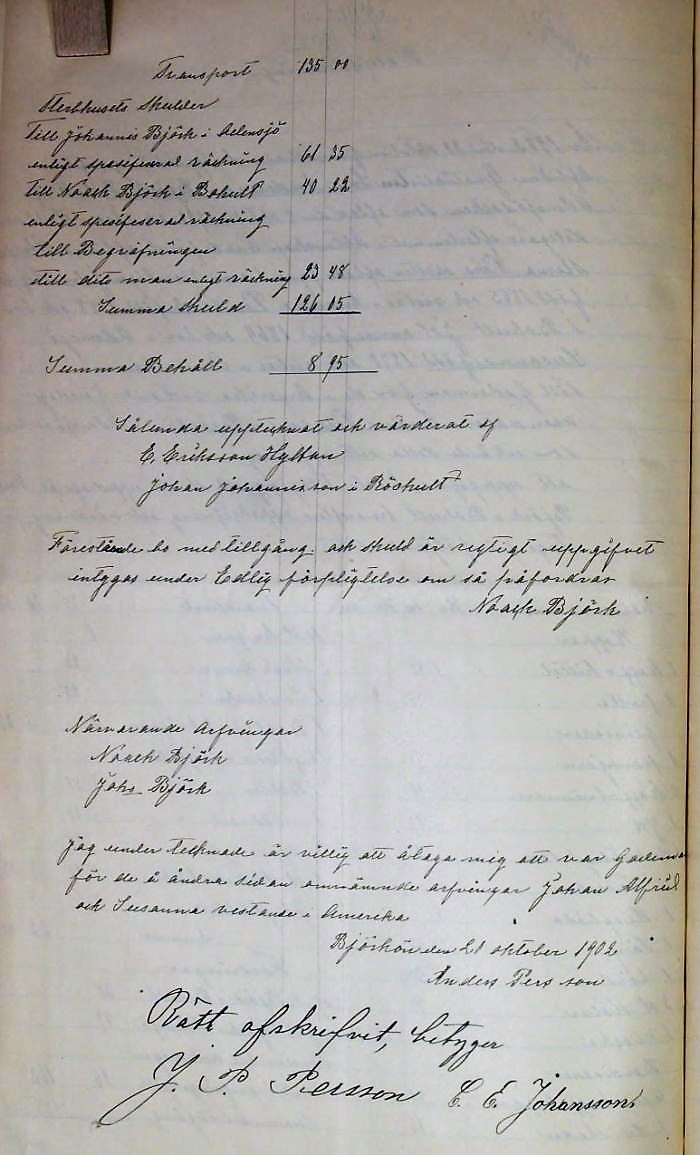 Transport 135 00
Sterbhusets Skulder
Till Johannis Björk i
enligt spesifeserad räckning 61 35
till Noack Björk i Bokult 40 22
enligt spesifeserad räckning
till Begrafningen
till dito man enligt räckning 23 48
Summa Skuld 126 05
Summa Behåll 8 95
Sålunda upptecknat och värderat af
E. Eriksson Hyltan
Johan Johannisson i
Förestående bo med tillgång och skuld är rigtigt uppgifvet
intygas under Edlig förpligtelse om så påfordras
Noack Björk
Närvarande Arfvingar
Noack Björk
Johs Björk
Jag under tecknade är villig att åtaga mig att var
för de å andra sidan omnämnde arfvingar Johan Alfrid
och Susanna vestande i Amerika
den 21 oktober 1902
Anders Persson
Rätt afskrifvit, betyger
J. P. Persson C. E. Johansson